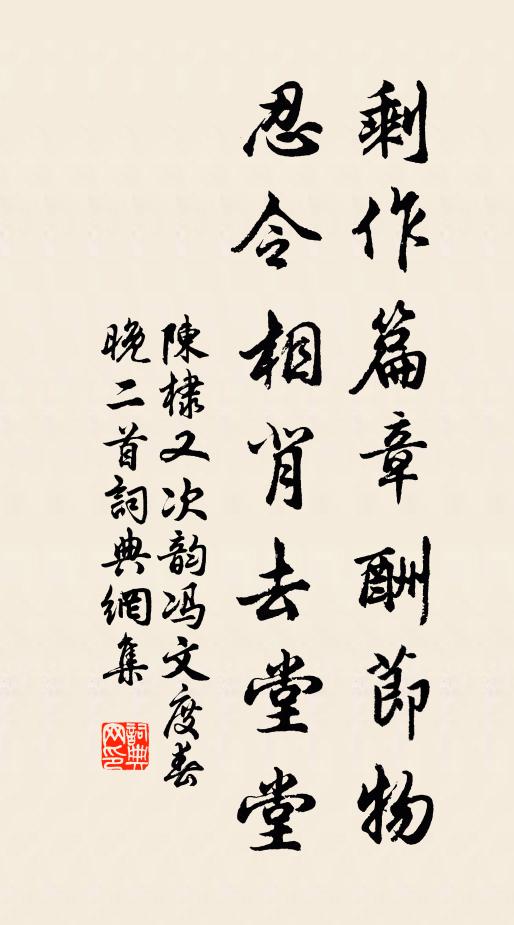 剩作篇章酬節物
忍令相背去堂堂
陳棣又次韵冯文度春
晚二首詞典網集
詞典
网印